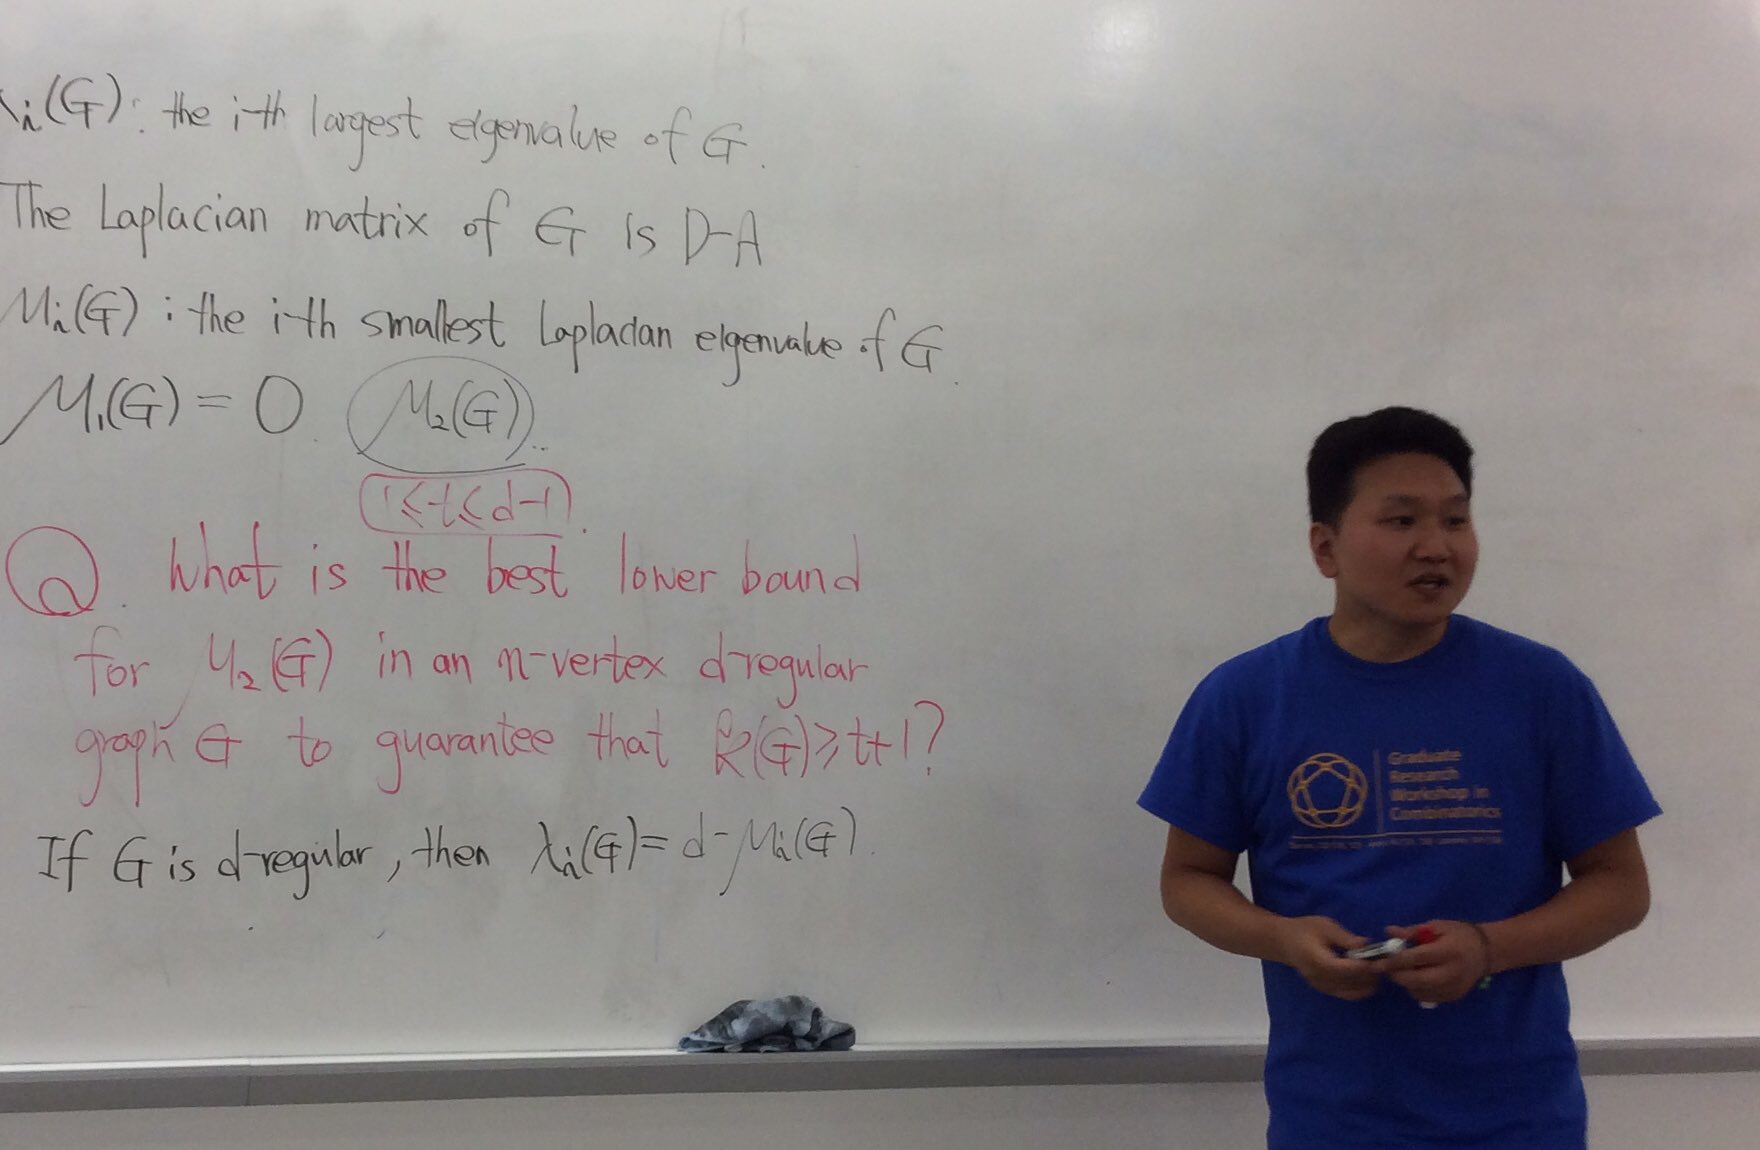 λi(G): the i-th largest eigenvalue of G.
The Laplacian matrix of G is D-A
μi(G): the i-th smallest Laplacian eigenvalue of G.
μ1(G) = 0. μ2(G)..
1≤t≤d-1.
Q. What is the best lower bound
for μ2(G) in an n-vertex d-regular
graph G to guarantee that k(G)≥t+1?
If G is d-regular, then λi(G)=d-μi(G).
Graduate
Research
Workshop in
Combinatorics